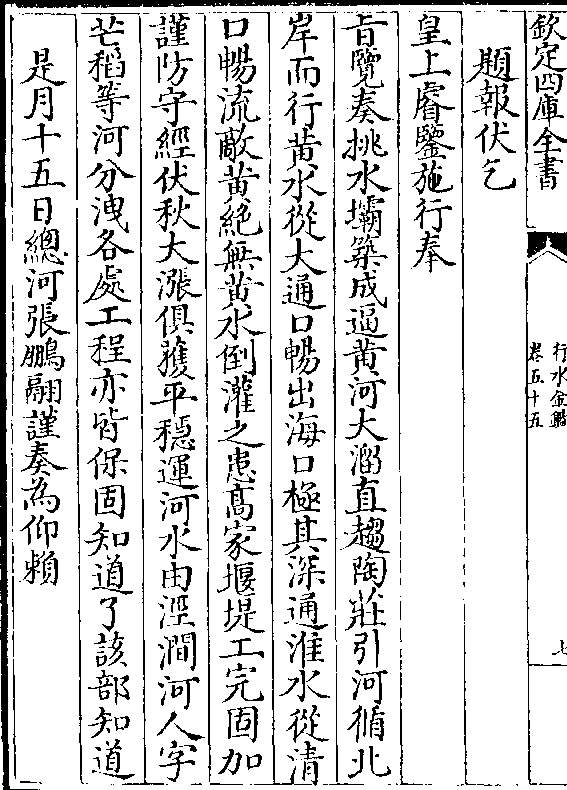 欽定四庫全書
行水金鑑
卷五十五
七
題報伏乞
皇上睿鑒施行奉
旨覽奏挑水壩築成逼黄河大溜直趨陶莊引河循北
岸而行黄水從大通口暢出海口極其深通淮水從清
口暢流敵黄絶無黄水倒灌之患髙家堰堤工完固加
謹防守經伏秋大漲俱獲平穏運河水由涇澗河人字
芒稻等河分洩各處工程亦皆保固知道了該部知道
是月十五日總河張鵬翮謹奏為仰賴